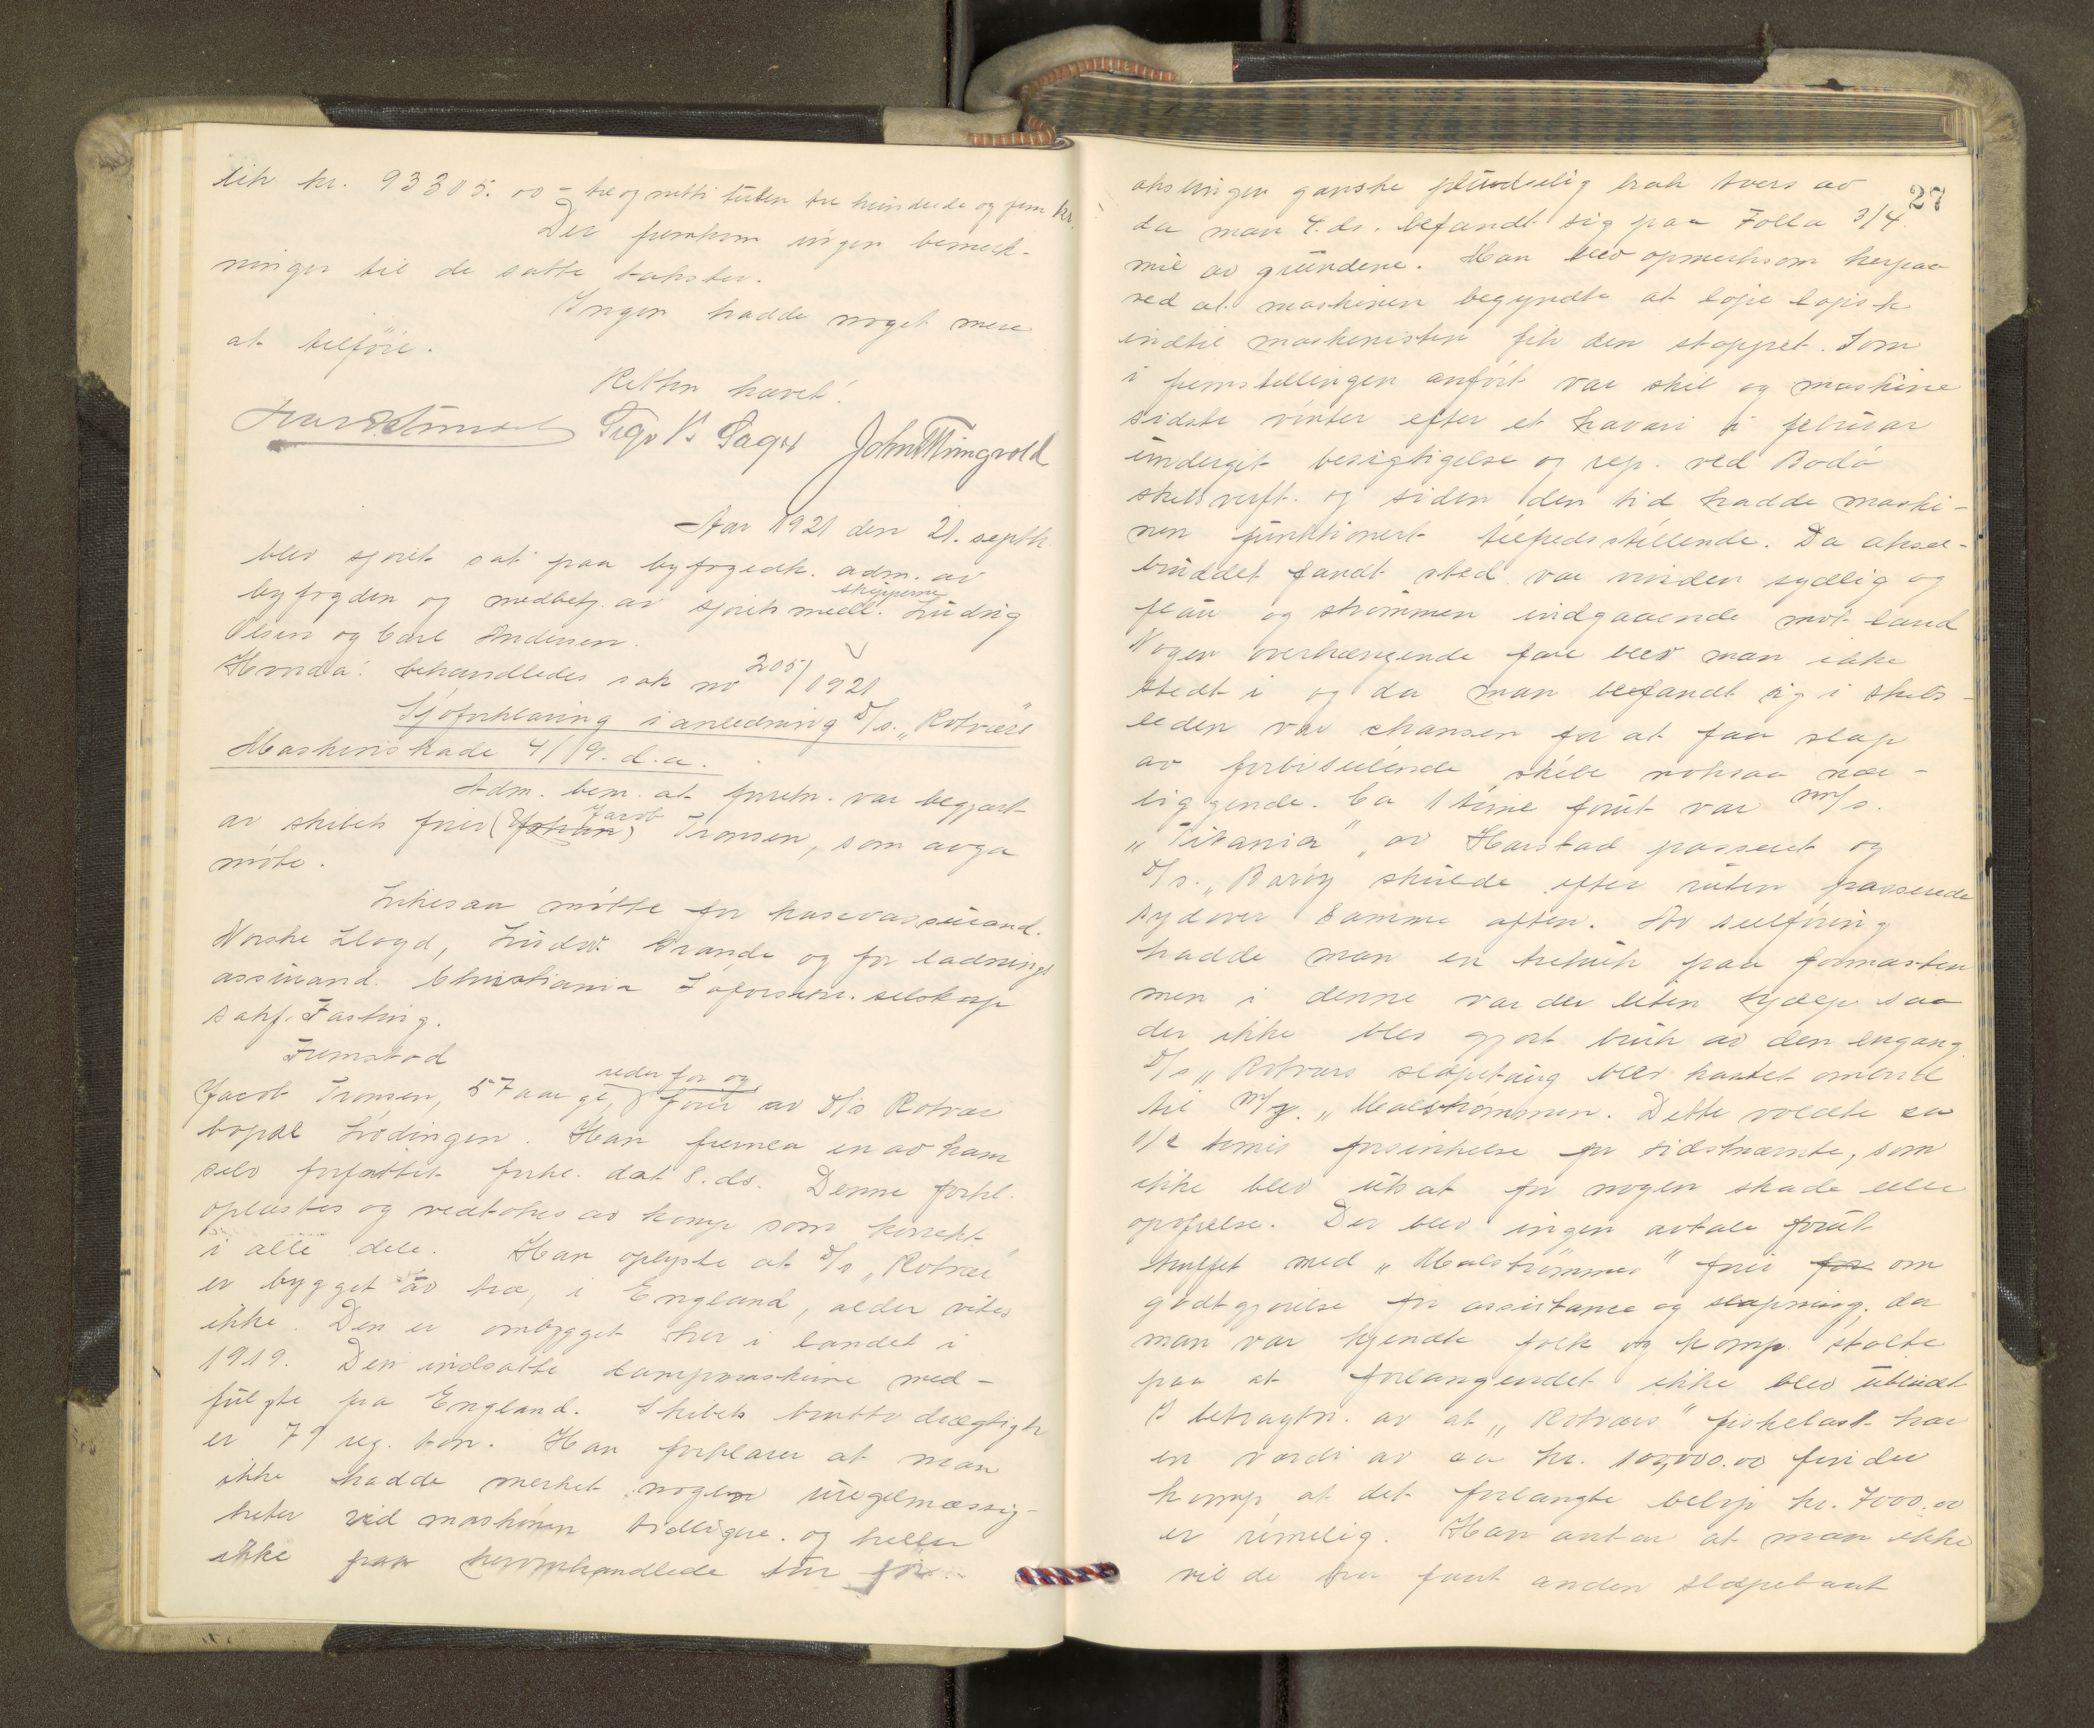 lik kr. 93305.00 - tre og nitti tusen tre hundrede og fem kr.
Der fremkom ingen bemerk-
ninger til de satte takster.
Ingen hadde noget mere
at tilføie.
Retten hævet!
Sigv. B. Sager John M Ringvold
Aar 1921 den 21. septbr.
blev sjøret sat paa byfogedk. adm. av
byfogden og medbetj. av sjøretsmedl. skipperne Ludvig
Olsen og Carl Andersen.
Hvorda: behandledes sak no 205/1921
Sjøforklaring i anledning D/s. "Rotvær"
Maskinskade 4/9. d.a.
Adm. bem. at forretn. var begjært
av skibets fører (Johan) Jacob Tronsen, som avga
møte.
Likesaa møtte for kascoassurand.
Norske Lloyd, Ludv. Brande og for ladnings
assurand. Christiania Søforsikr. selskap
sakf. Fasting.
Fremstod
Jacob Tronsen, 57 aar gl., reder for og fører av D/s Rotvær
bopæl Lødingen. Han fremla en av ham
selv forfattet forkl. dat 8. ds. Denne forkl.
oplæstes og vedtokes av komp som korrekt
i alle dele. Han oplyste at D/s "Rotvær"
er bygget av træ, i England, alder vites
ikke. Den er ombygget her i landet i
1919. Den indsatte dampmaskine med-
fulgte fra England. Skibets brutto drægtigh
er 79 reg. ton. Han forklarer at man
ikke hadde merket nogen uregelmæssig-
heter ved maskinen tidligere og heller
ikke paa heromhandlede tur før
27
akslingen ganske pludselig brak tvers av
da man 4. ds. befandt sig paa Folla 3/4
mil av grundene. Man blev opmerksom herpaa
ved at maskinen begyndte at løpe løpsk
indtil maskinisten fik den stoppet. Som
i fremstillingen anført var skib og maskine
sidste vinter efter et havari i februar
undergit besigtigelse og rep. ved Bodø
skibsverft. og siden den tid hadde maski-
nen funktionert tilfredsstillende. Da aksel-
bruddet fandt sted var vinden sydlig og
flau og strømmen indgaaende mot land
Nogen overhængende fare blev man ikke
stedt i og da man befandt sig i skibs-
leden var chansen for at faa slæp
av forbiseilende skibe noksaa nær-
liggende. Ca 1 time forut var m/s.
"Titania" av Harstad passeret og
D/s. "Barøy skulde efter ruten passerede
sydover samme aften. Av seilføring
hadde man en trekuk paa formasten
men i denne var der liten hjælp saa
der ikke blev gjort bruk av den engang
D/s "Rotværs slæpetaug blev kastet ombord
til M/s. "Malstrømmen. Dette voldte ca
1/2 times forsinkelse for sidstnævnte, som
ikke blev utsat for nogen skade eller
opofrelse. Der blev ingen avtale forut
truffet med "Malstrømmes" fører for om
godtgjørelse for assistance og slæpning, da
man var kjendte folk og komp. stolte
paa at forlangendet ikke blev ubludt
I betragtn. av at "Rotværs" fiskelast har
en værdi av ca kr. 100,000.00 finder
komp at det forlangte beløp kr. 7000.00
er rimelig. Han antar at man ikke
vilde ha faat anden slæpebaat